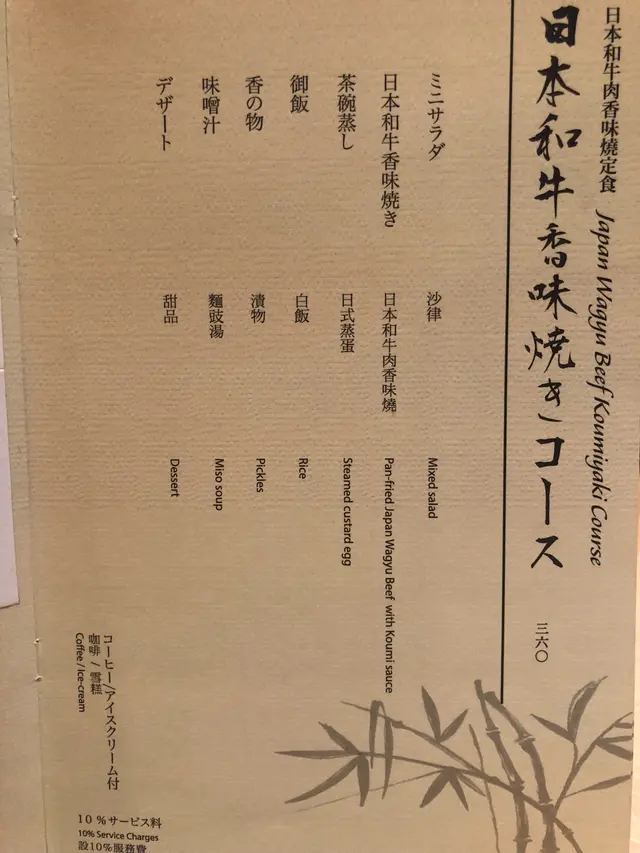 日本和牛肉香味燒定食 Japan Wagyu Beef Koumiyaki Course
日本和牛香味焼きコース 三六〇
ミニサラダ 沙律 Mixed salad
日本和牛香味焼き 日本和牛肉香味燒 Pan-fried Japan Wagyu Beef with Koumi sauce
茶碗蒸し 日式蒸蛋 Steamed custard egg
御飯 白飯 Rice
香の物 漬物 Pickles
味噌汁 麵豉湯 Miso soup
デザート 甜品 Dessert
コーヒー/アイスクリーム付
咖啡 / 雪糕
Coffee / Ice-cream
10 %サービス料
10% Service Charges
設10%服務費